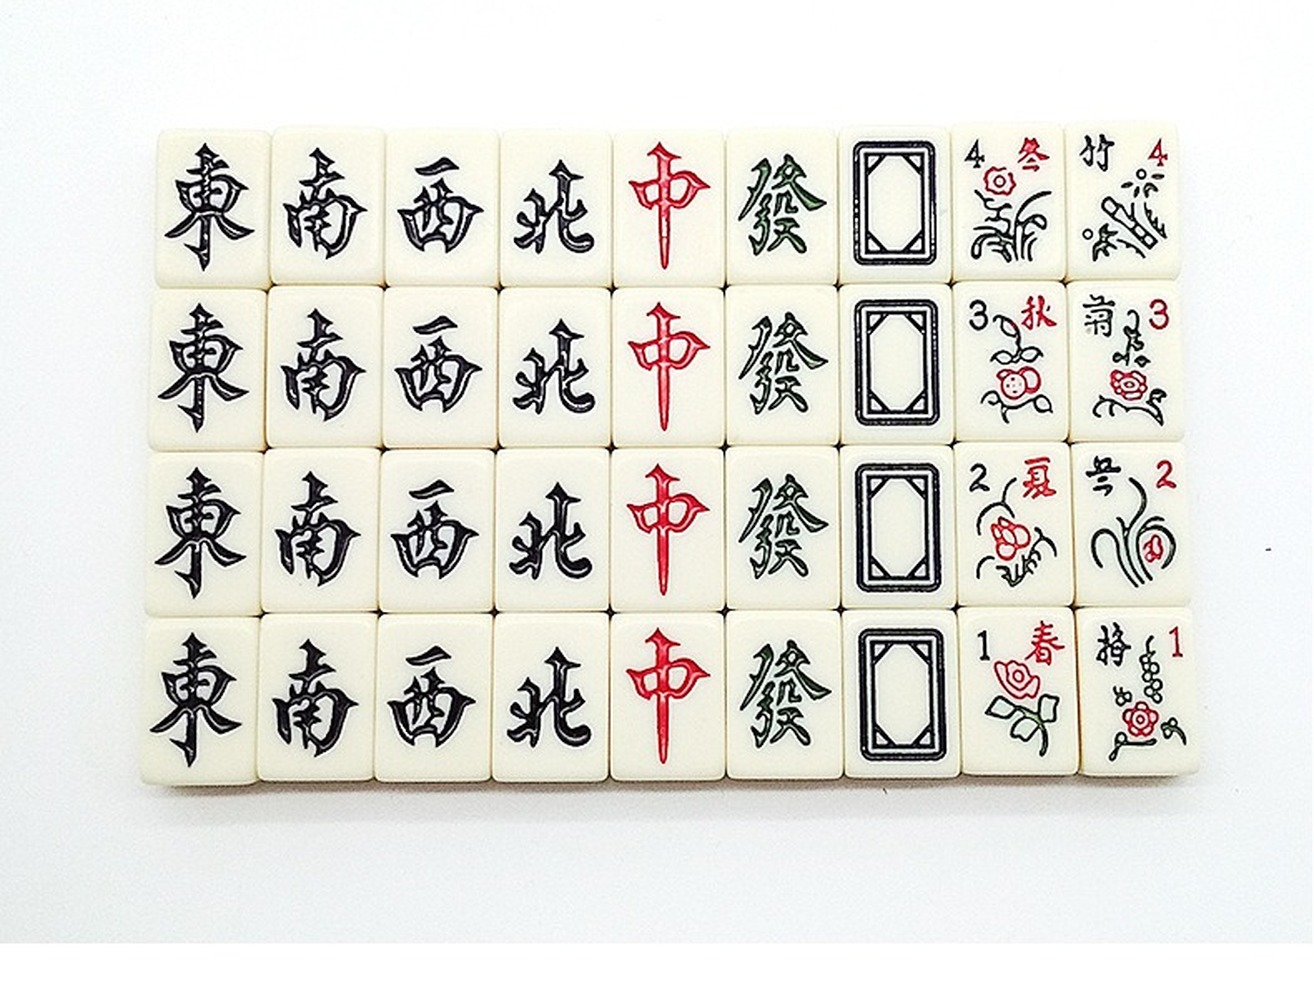 東 南 西 北 中 發 4 冬 竹 4
東 南 西 北 中 發 3 秋 菊 3
東 南 西 北 中 發 2 夏 兰 2
東 南 西 北 中 發 1 春 梅 1